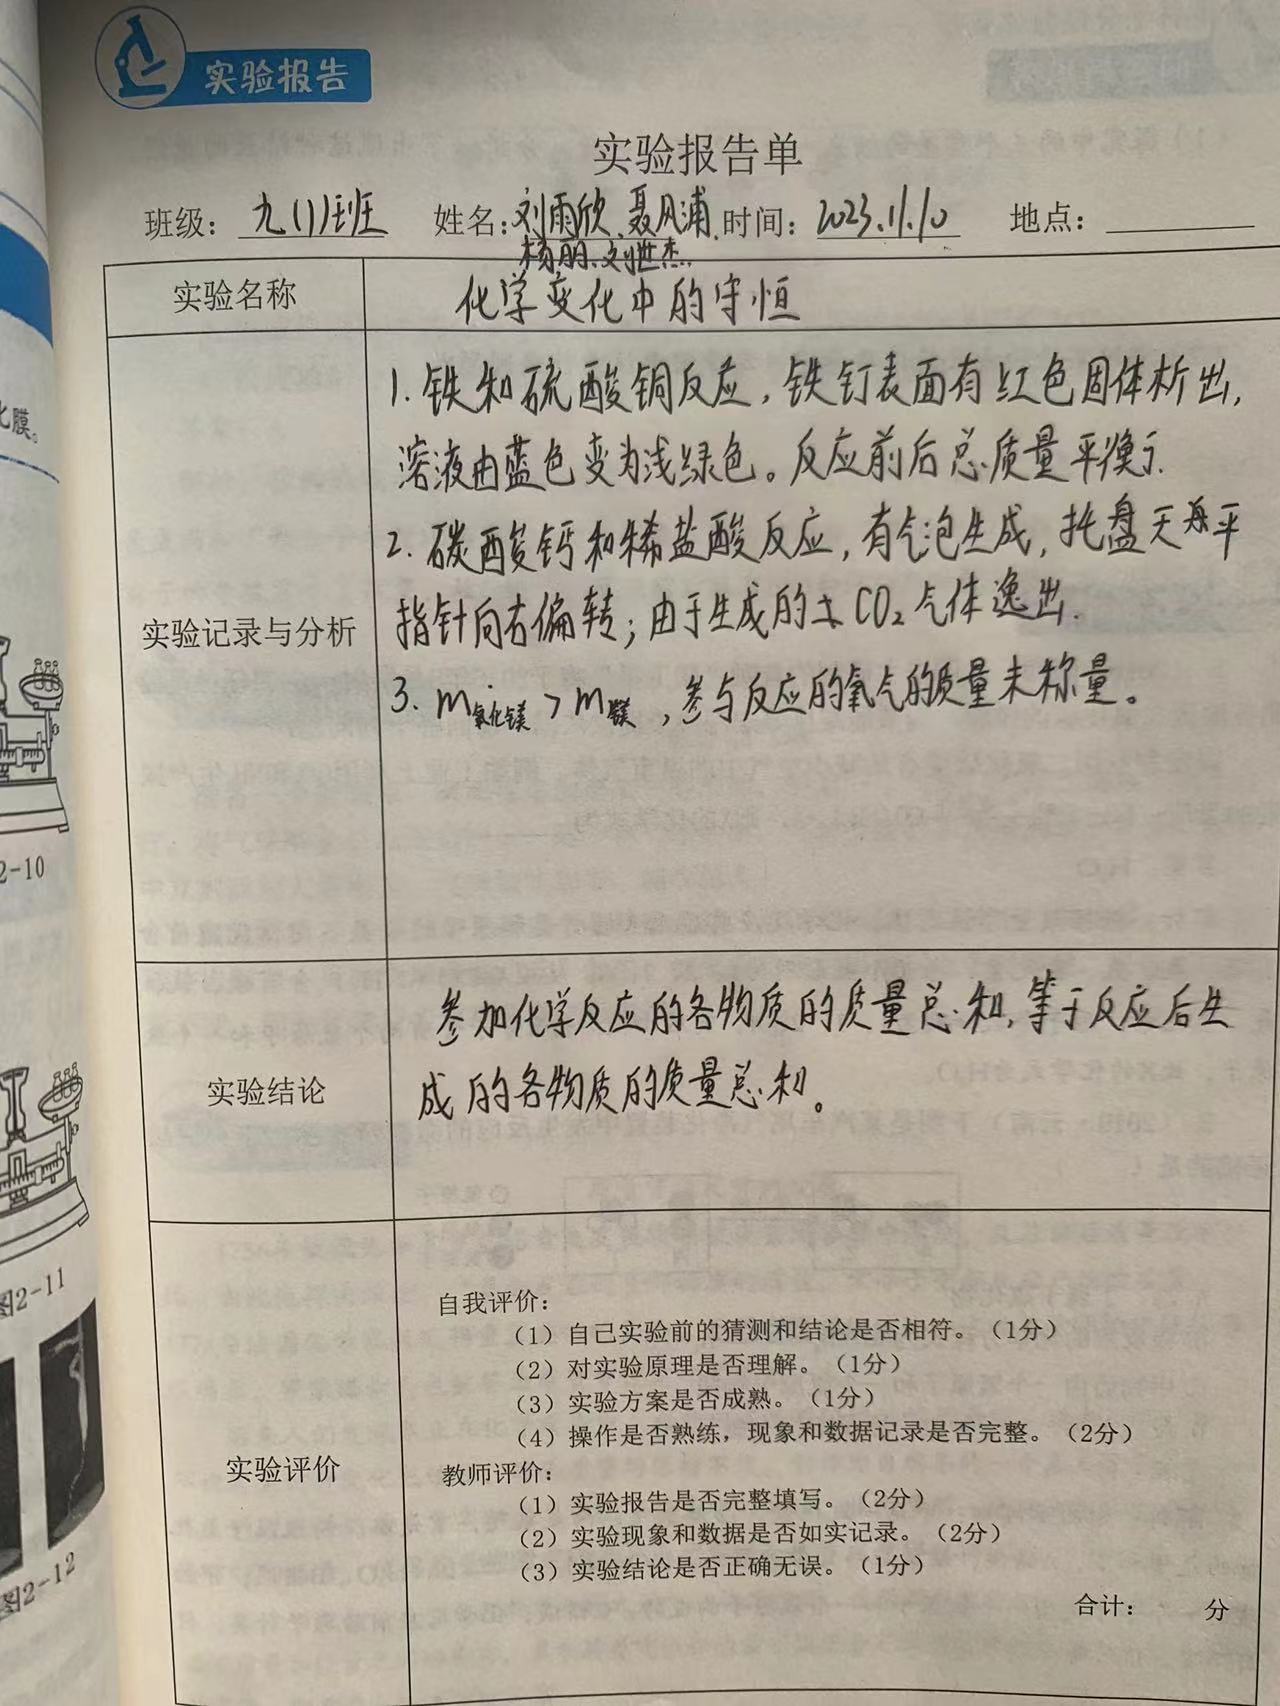 实验报告
实验报告单
班级： 九(1)班 姓名：刘雨欣、聂风浦、时间：2023.11.10 地点：
杨丽、刘世杰
实验名称 化学变化中的守恒
1. 铁和硫酸铜反应，铁钉表面有红色固体析出，
溶液由蓝色变为浅绿色。反应前后总质量平衡
2. 碳酸钙和稀盐酸反应，有气泡生成，托盘天平
实验记录与分析
指针向右偏转；由于生成的 CO₂ 气体逸出.
3. m氧化镁 > m镁，参与反应的氧气的质量未称量。
参加化学反应的各物质的质量总和，等于反应后生
实验结论
成的各物质的质量总和。
实验评价
自我评价：
（1）自己实验前的猜测和结论是否相符。（1分）
（2）对实验原理是否理解。（1分）
（3）实验方案是否成熟。（1分）
（4）操作是否熟练，现象和数据记录是否完整。（2分）
教师评价：
（1）实验报告是否完整填写。（2分）
（2）实验现象和数据是否如实记录。（2分）
（3）实验结论是否正确无误。（1分）
合计： 分
化膜。
2-10
图2-11
图2-12